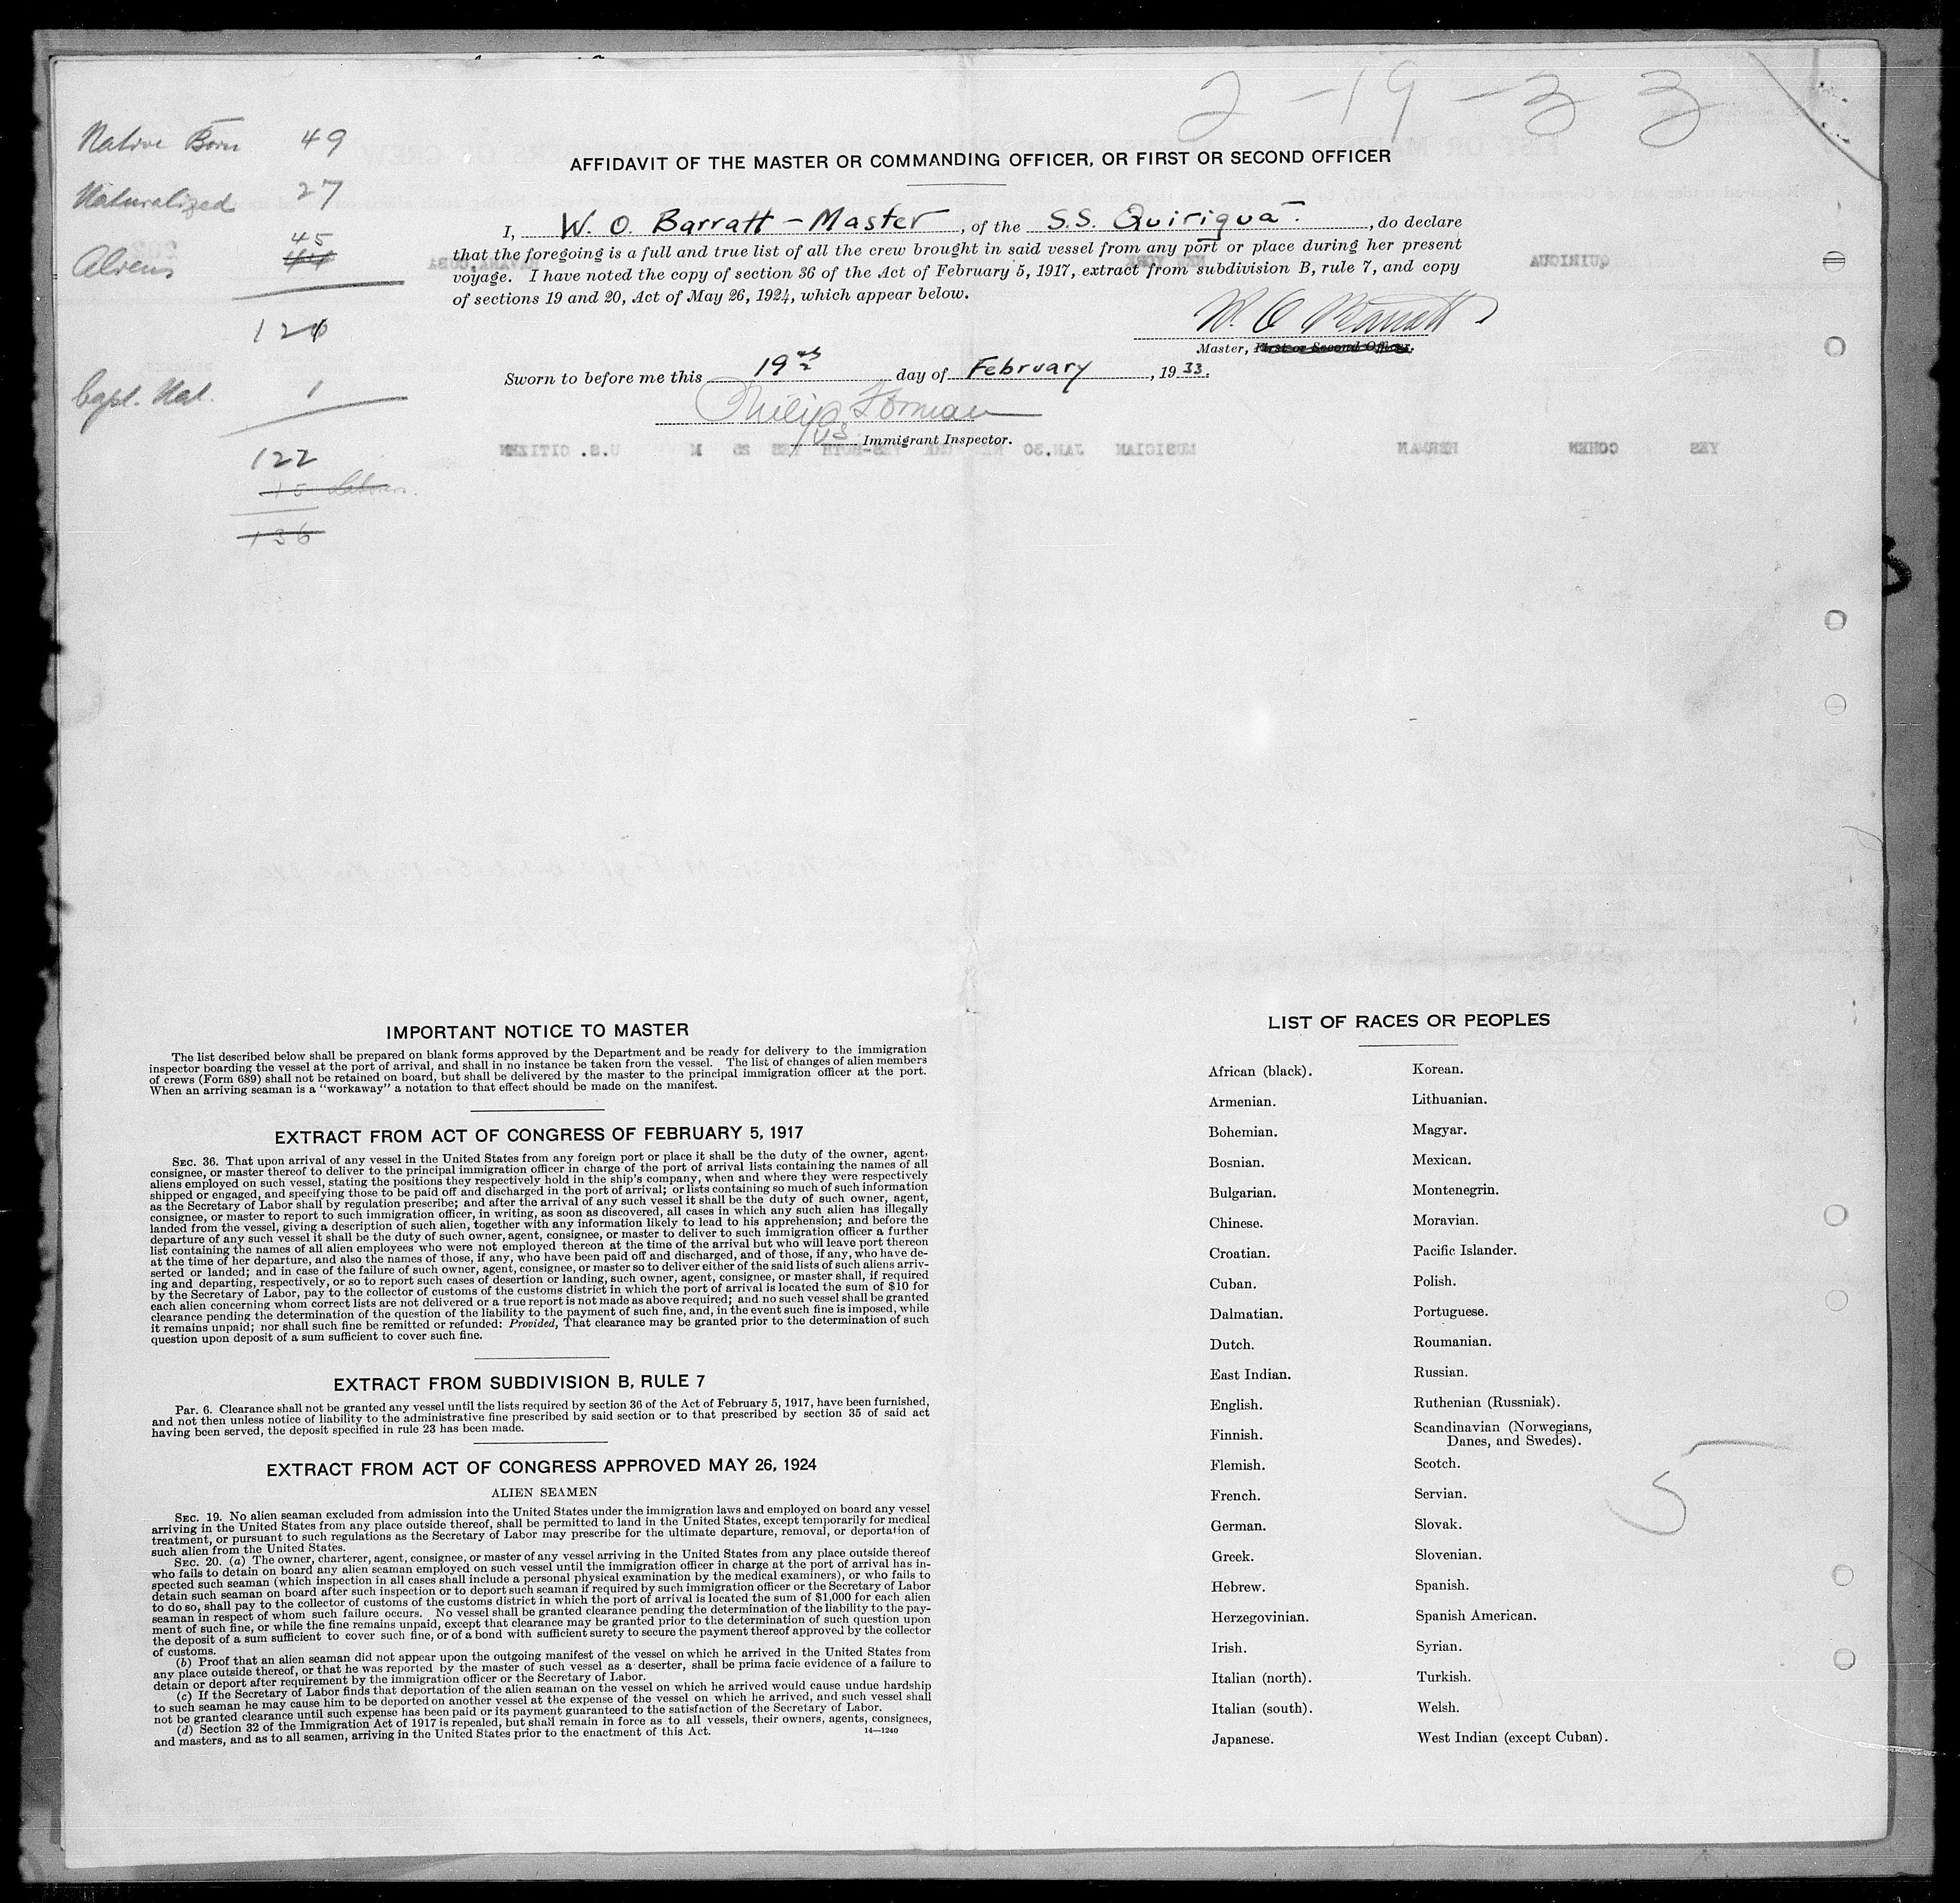 2-19-33
Native Born 49
Naturalized 27
45
Aliens 44
121
Capt. Nat. 1
122
15
136
AFFIDAVIT OF THE MASTER OR COMMANDING OFFICER, OR FIRST OR SECOND OFFICER
I, W. O. Barratt – Master, of the S.S. Quirigua., do declare
that the foregoing is a full and true list of all the crew brought in said vessel from any port or place during her present
voyage. I have noted the copy of section 36 of the Act of February 5, 1917, extract from subdivision B, rule 7, and copy
of sections 19 and 20, Act of May 26, 1924, which appear below.
W. O. Barratt
Master, First or Second Officer.
Sworn to before me this 19th day of February, 1933.
Immigrant Inspector.
IMPORTANT NOTICE TO MASTER
The list described below shall be prepared on blank forms approved by the Department and be ready for delivery to the immigration
inspector boarding the vessel at the port of arrival, and shall in no instance be taken from the vessel. The list of changes of alien members
of crews (Form 689) shall not be retained on board, but shall be delivered by the master to the principal immigration officer at the port.
When an arriving seaman is a "workaway" a notation to that effect should be made on the manifest.
EXTRACT FROM ACT OF CONGRESS OF FEBRUARY 5, 1917
SEC. 36. That upon arrival of any vessel in the United States from any foreign port or place it shall be the duty of the owner, agent,
consignee, or master thereof to deliver to the principal immigration officer in charge of the port of arrival lists containing the names of all
aliens employed on such vessel, stating the positions they respectively hold in the ship's company, when and where they were respectively
shipped or engaged, and specifying those to be paid off and discharged in the port of arrival; or lists containing so much of such information
as the Secretary of Labor shall by regulation prescribe; and after the arrival of any such vessel it shall be the duty of such owner, agent,
consignee, or master to report to such immigration officer, in writing, as soon as discovered, all cases in which any such alien has illegally
landed from the vessel, giving a description of such alien, together with any information likely to lead to his apprehension; and before the
departure of any such vessel it shall be the duty of such owner, agent, consignee, or master to deliver to such immigration officer a further
list containing the names of all alien employees who were not employed thereon at the time of the arrival but who will leave port thereon
at the time of her departure, and also the names of those, if any, who have been paid off and discharged, and of those, if any, who have de-
serted or landed; and in case of the failure of such owner, agent, consignee, or master so to deliver either of the said lists of such aliens arriv-
ing and departing, respectively, or so to report such cases of desertion or landing, such owner, agent, consignee, or master shall, if required
by the Secretary of Labor, pay to the collector of customs of the customs district in which the port of arrival is located the sum of $10 for
each alien concerning whom correct lists are not delivered or a true report is not made as above required; and no such vessel shall be granted
clearance pending the determination of the question of the liability to the payment of such fine, and, in the event such fine is imposed, while
it remains unpaid; nor shall such fine be remitted or refunded: Provided, That clearance may be granted prior to the determination of such
question upon deposit of a sum sufficient to cover such fine.
EXTRACT FROM SUBDIVISION B, RULE 7
Par. 6. Clearance shall not be granted any vessel until the lists required by section 36 of the Act of February 5, 1917, have been furnished,
and not then unless notice of liability to the administrative fine prescribed by said section or to that prescribed by section 35 of said act
having been served, the deposit specified in rule 23 has been made.
EXTRACT FROM ACT OF CONGRESS APPROVED MAY 26, 1924
ALIEN SEAMEN
SEC. 19. No alien seaman excluded from admission into the United States under the immigration laws and employed on board any vessel
arriving in the United States from any place outside thereof, shall be permitted to land in the United States, except temporarily for medical
treatment, or pursuant to such regulations as the Secretary of Labor may prescribe for the ultimate departure, removal, or deportation of
such alien from the United States.
SEC. 20. (a) The owner, charterer, agent, consignee, or master of any vessel arriving in the United States from any place outside thereof
who fails to detain on board any alien seaman employed on such vessel until the immigration officer in charge at the port of arrival has in-
spected such seaman (which inspection in all cases shall include a personal physical examination by the medical examiners), or who fails to
detain such seaman on board after such inspection or to deport such seaman if required by such immigration officer or the Secretary of Labor
to do so, shall pay to the collector of customs of the customs district in which the port of arrival is located the sum of $1,000 for each alien
seaman in respect of whom such failure occurs. No vessel shall be granted clearance pending the determination of the liability to the pay-
ment of such fine, or while the fine remains unpaid, except that clearance may be granted prior to the determination of such question upon
the deposit of a sum sufficient to cover such fine, or of a bond with sufficient surety to secure the payment thereof approved by the collector
of customs.
(b) Proof that an alien seaman did not appear upon the outgoing manifest of the vessel on which he arrived in the United States from
any place outside thereof, or that he was reported by the master of such vessel as a deserter, shall be prima facie evidence of a failure to
detain or deport after requirement by the immigration officer or the Secretary of Labor.
(c) If the Secretary of Labor finds that deportation of the alien seaman on the vessel on which he arrived would cause undue hardship
to such seaman he may cause him to be deported on another vessel at the expense of the vessel on which he arrived, and such vessel shall
not be granted clearance until such expense has been paid or its payment guaranteed to the satisfaction of the Secretary of Labor.
(d) Section 32 of the Immigration Act of 1917 is repealed, but shall remain in force as to all vessels, their owners, agents, consignees,
and masters, and as to all seamen, arriving in the United States prior to the enactment of this Act. 14—1240
LIST OF RACES OR PEOPLES
African (black). Korean.
Armenian. Lithuanian.
Bohemian. Magyar.
Bosnian. Mexican.
Bulgarian. Montenegrin.
Chinese. Moravian.
Croatian. Pacific Islander.
Cuban. Polish.
Dalmatian. Portuguese.
Dutch. Roumanian.
East Indian. Russian.
English. Ruthenian (Russniak).
Finnish. Scandinavian (Norwegians,
Danes, and Swedes).
Flemish. Scotch.
French. Servian.
German. Slovak.
Greek. Slovenian.
Hebrew. Spanish.
Herzegovinian. Spanish American.
Irish. Syrian.
Italian (north). Turkish.
Italian (south). Welsh.
Japanese. West Indian (except Cuban).
5